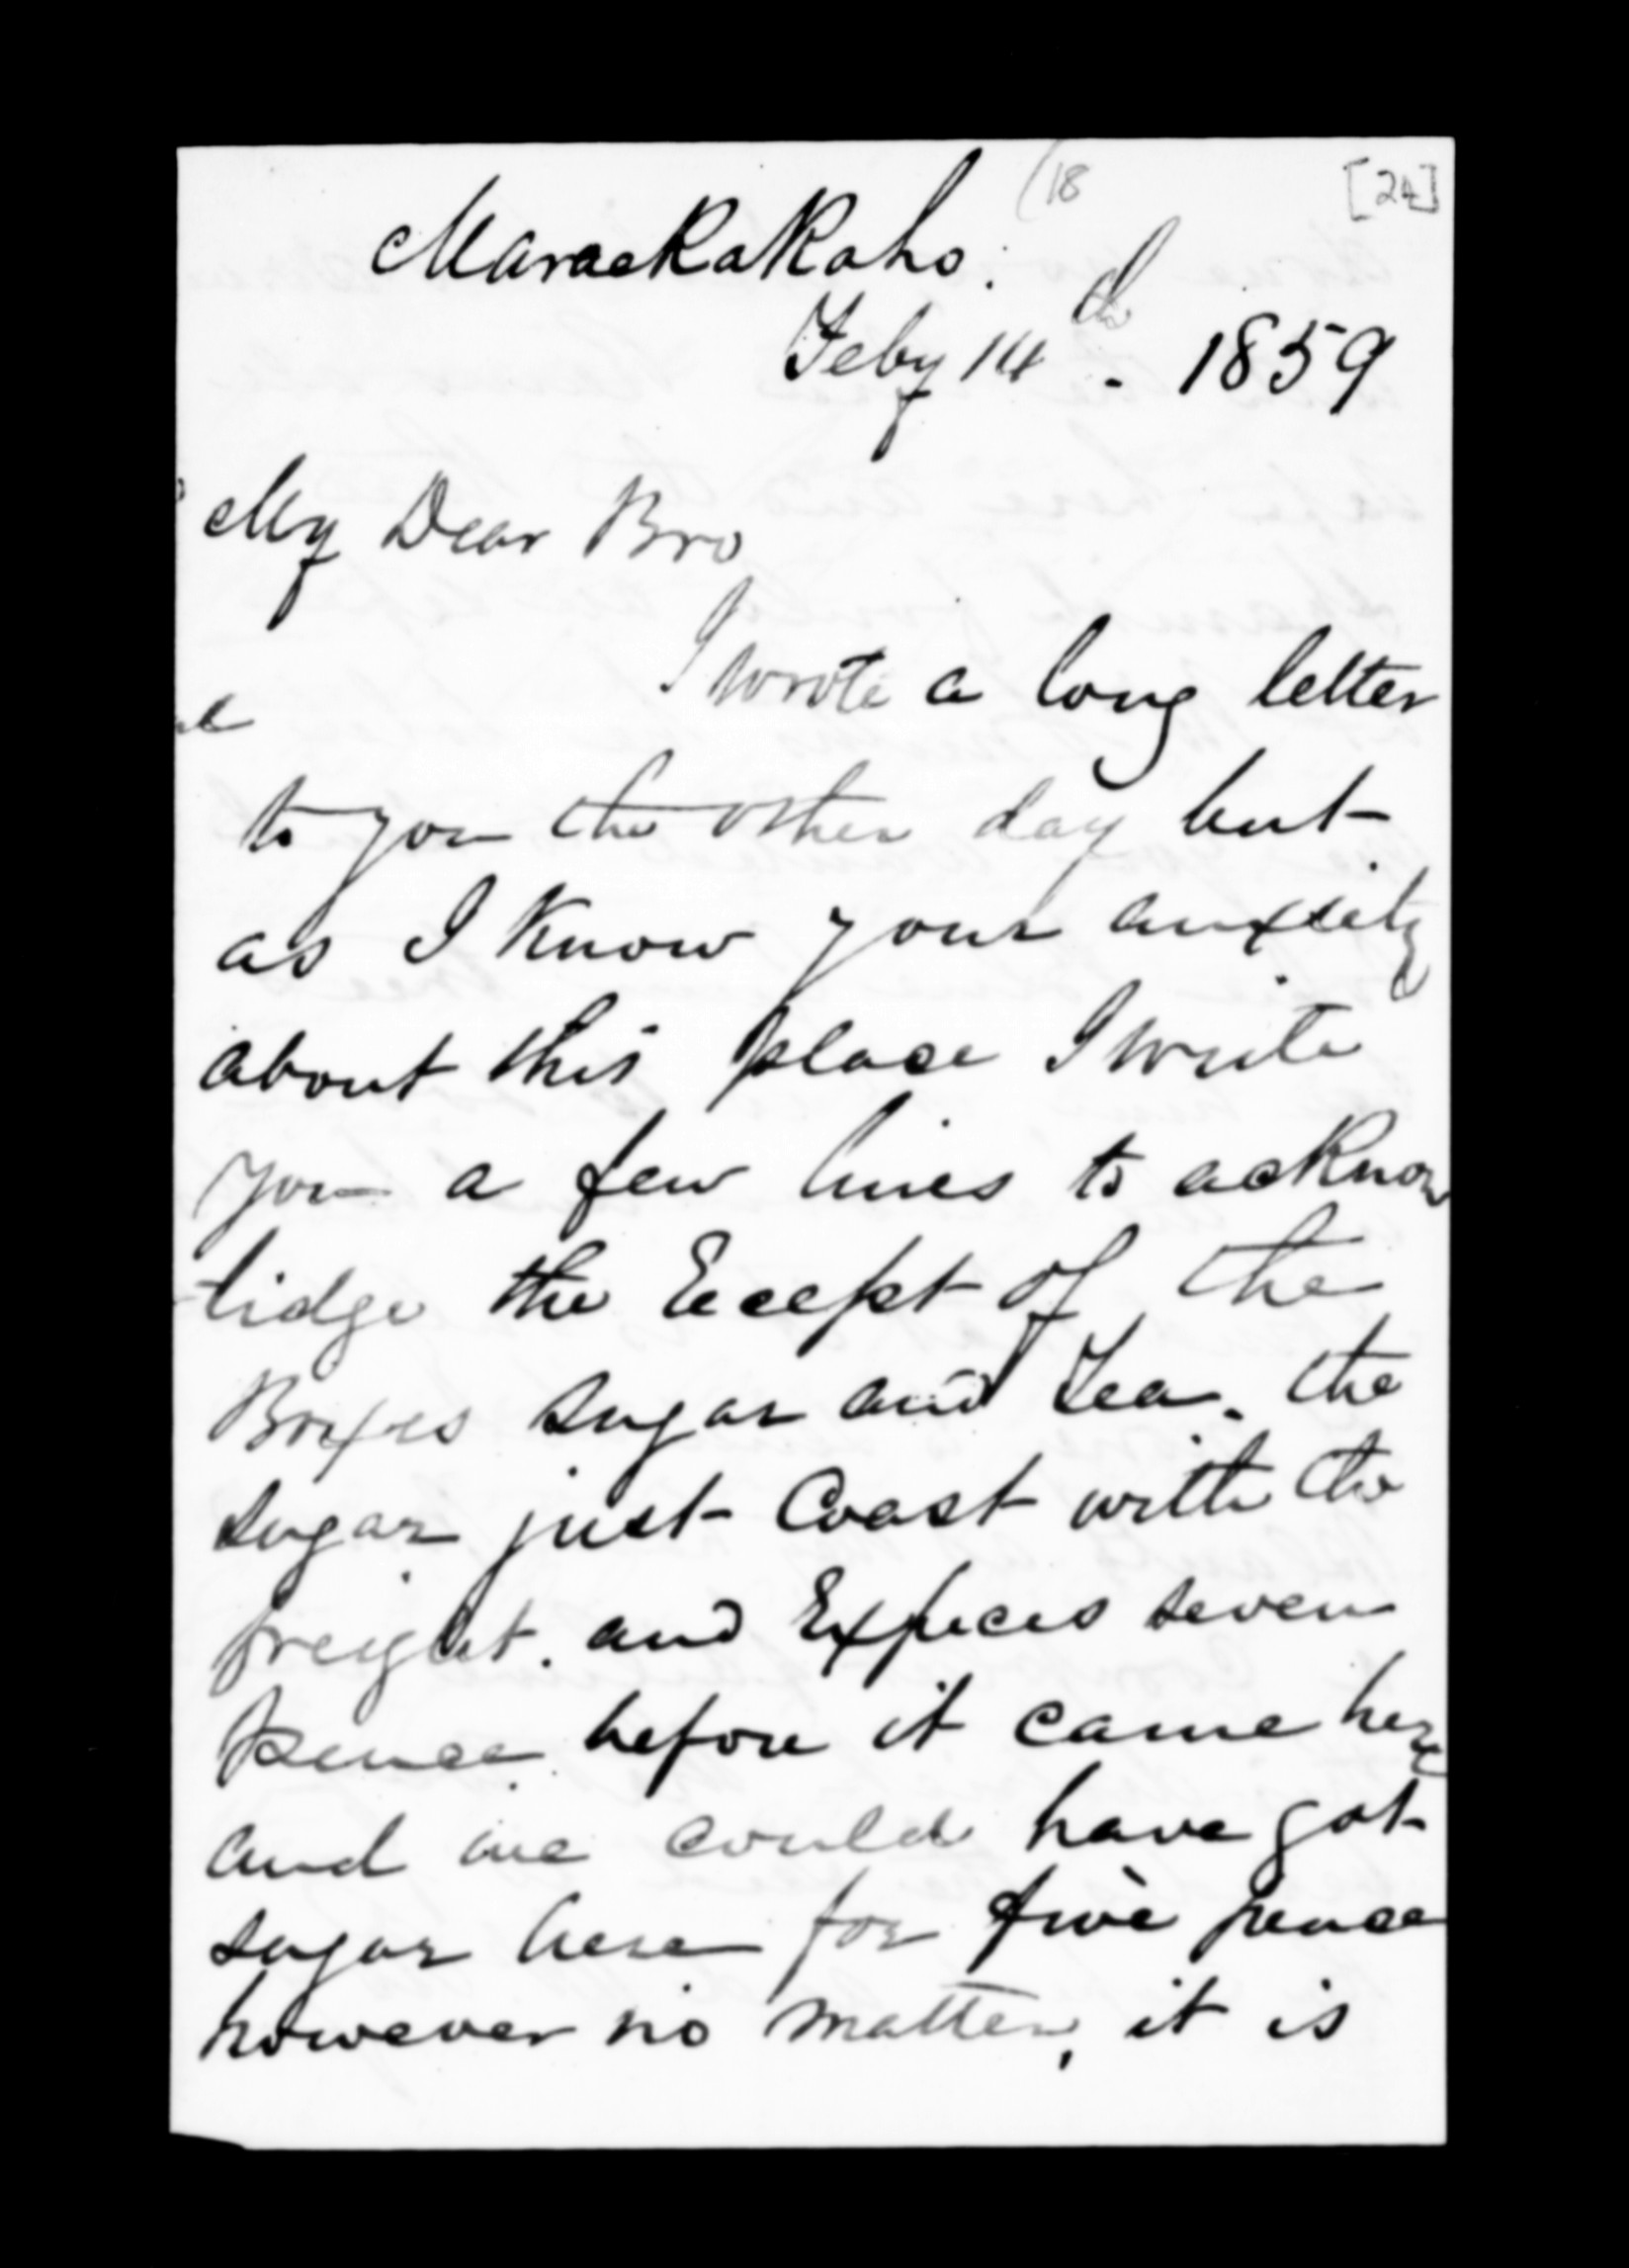 (18 [24]
MaraekaKaho.
Feby 14th. 1859
My Dear Bro
I wrote a long letter
to you the other day but
as I know your anxiety
about this place I write
you a few lines to acknow
-lidge the Eecept of the
Boxes sugar and Tea. the
sugar just Coast with the
freight. and Expeces seven
pence before it came here
and we could have got
sugar here for five pence
however no matter, it is